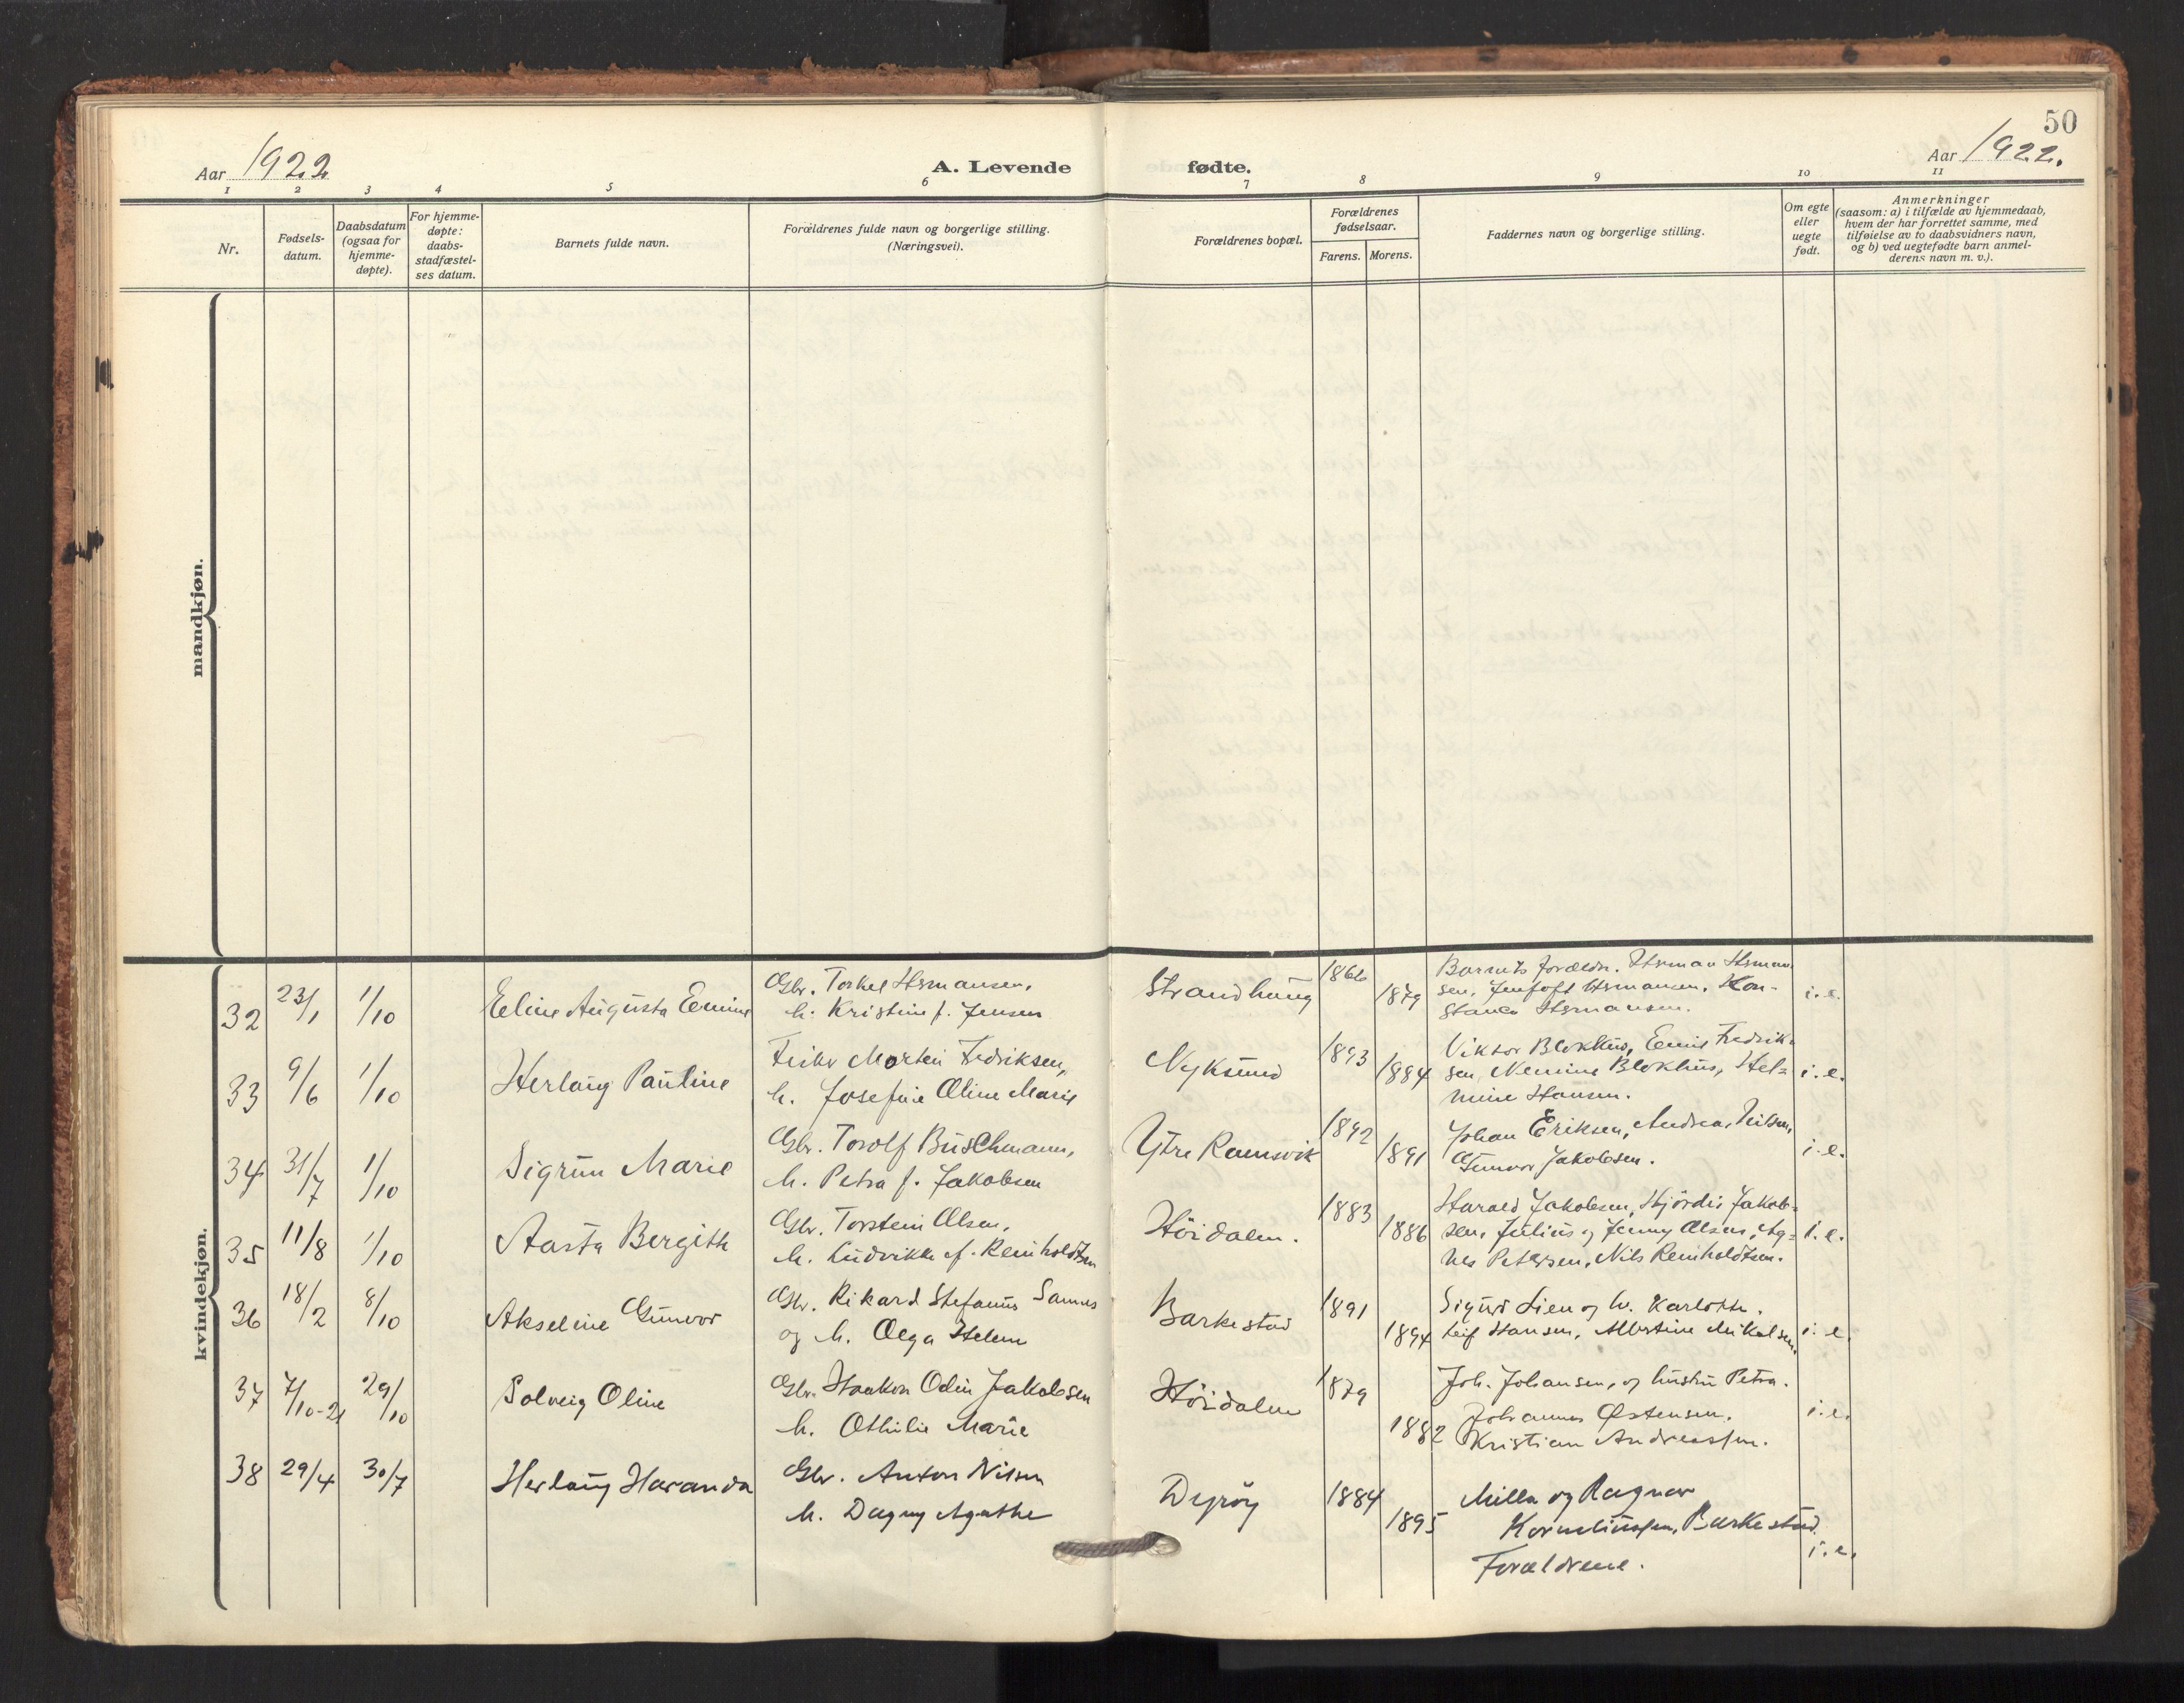 50
Aar 1922
A. Levende fødte.
Aar 1922.
1 2 3 4 5 6 7 8 9 10 11
Nr.
Fødsels-
datum.
Daabsdatum
(ogsaa for
hjemme-
døpte).
For hjemme-
døpte:
daabs-
stadfæstel-
ses datum.
Barnets fulde navn.
Forældrenes fulde navn og borgerlige stilling.
(Næringsvei).
Forældrenes bopæl.
Forældrenes
fødselsaar.
Farens. Morens.
Faddernes navn og borgerlige stilling.
Om egte
eller
uegte
født.
Anmerkninger
(saasom: a) i tilfælde av hjemmedaab,
hvem der har forrettet samme, med
tilføielse av to daabsvidners navn,
og b) ved uegtefødte barn anmel-
derens navn m. v.).
mandkjøn.
kvindekjøn.
32
23/1
1/10
Eline Augusta Emine
Gbr. Torkel Hermansen,
h. Kristine f. Jensen
Strandhaug
1866
1879
Barnets foreldre. Herman Herman-
sen, Jentoft Hermansen, Kon-
stance Hermansen.
i. e.
33
9/6
1/10
Herlaug Pauline
Fisker Morten Fedriksen,
h. Josefine Oline Marie
Nyksund
1893
1884
Viktor Blokhus, Emil Fredrik-
sen, Nemine Blokhus, Hel-
mine Hansen.
i. e.
34
31/7
1/10
Sigrun Marie
Gbr. Torolf Buschmann,
h. Petra f. Jakobsen
Ytre Ramsvik
1892
1891
Johan Eriksen, Andrea Nilsen,
Gunvor Jakobsen.
i. e.
35
11/8
1/10
Aasta Bergith
Gbr. Torstein Olsen,
h. Ludvikke f. Reinholdtsen
Høidalen.
1883
1886
Harald Jakobsen, Hjørdis Jakob-
sen, Julius og Jenny Olsen, Ag-
nes Petersen, Nils Reinholdtsen.
i. e.
36
18/2
8/10
Akseline Gunvor
Gbr. Rikard Stefanus Sannes
og h. Olga Helene
Barkestad
1891
1894
Sigurd Lien og h. Karlotte.
Leif Hansen, Albertine Mikalsen.
i. e.
37
7/10-21
29/10
Solveig Oline
Gbr. Haakon Odin Jakobsen
h. Othilie Marie
Høidalen
1879
1882
Joh. Johansen, og hustru Petra.
Johannes Østensen.
Kristian Andreassen.
i. e.
38
29/4
30/7
Herlaug Haranda
Gbr. Anton Nilsen
h. Dagny Agathe
Dyrøy
1884
1895
Milla og Ragnar
Korneliussen, Barkestad.
Forældrene.
i. e.